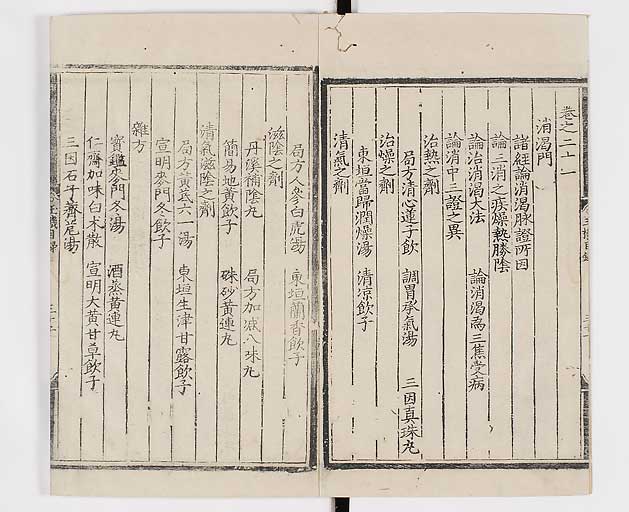 卷之二十一
消渴門
諸經論消渴脉證所因
論三消之疾燥熱勝陰
論治消渴大法　論消渴為三焦受病
論消中三證之異
治熱之劑
局方清心蓮子飲　調胃承氣湯　三因真珠丸
治燥之劑
東垣當歸潤燥湯　清凉飲子
清氣之劑
局方人參白虎湯　東垣蘭香飲子
滋陰之劑
丹溪補陰丸　局方加减八味丸
簡易地黃飲子　硃砂黃連丸
清氣滋陰之劑
局方黃芪六一湯　東垣生津甘露飲子
宣明麥門冬飲子
雜方
寶鑑麥門冬湯　酒蒸黃連丸
仁齋加味白术散　宣明大黃甘草飲子
三因石子薺苨湯